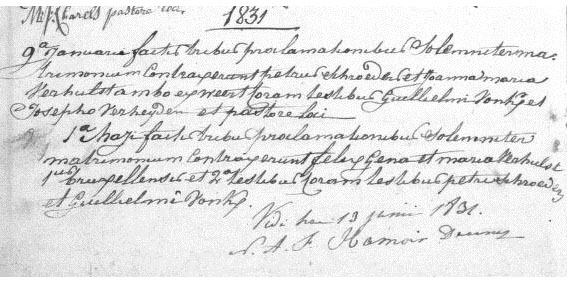 M. J. Charels pastore loci
1831
9a Januarii factis tribus proclamationibus Solemniter ma-
trimonium Contraxerunt petrus Schroeder et Joanna maria
Verhulst ambo ex weert Coram testibus Guillielmi Vonkx et
Josepho Verheyden et pastore loci
1a Maji factis tribus proclamationibus Solemniter
matrimonium Contraxerunt felix Gena et maria Verhulst
1us bruxellensis et 2a Coram testibus petri Schroeder
et Guillielmi Vonkx.
Vidi hac 13 junii 1831.
N. A. F. Hamoir